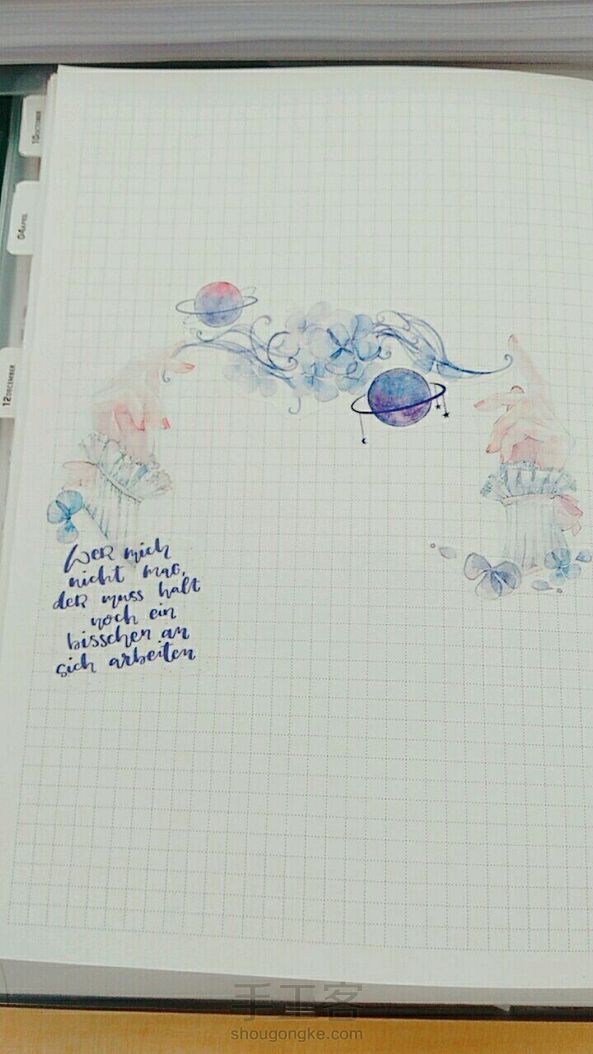 10OCTOBER
04APRIL
12DECEMBER
Wer mich
nicht mag,
der muss halt
noch ein
bisschen an
sich arbeiten
手工客
shougongke.com